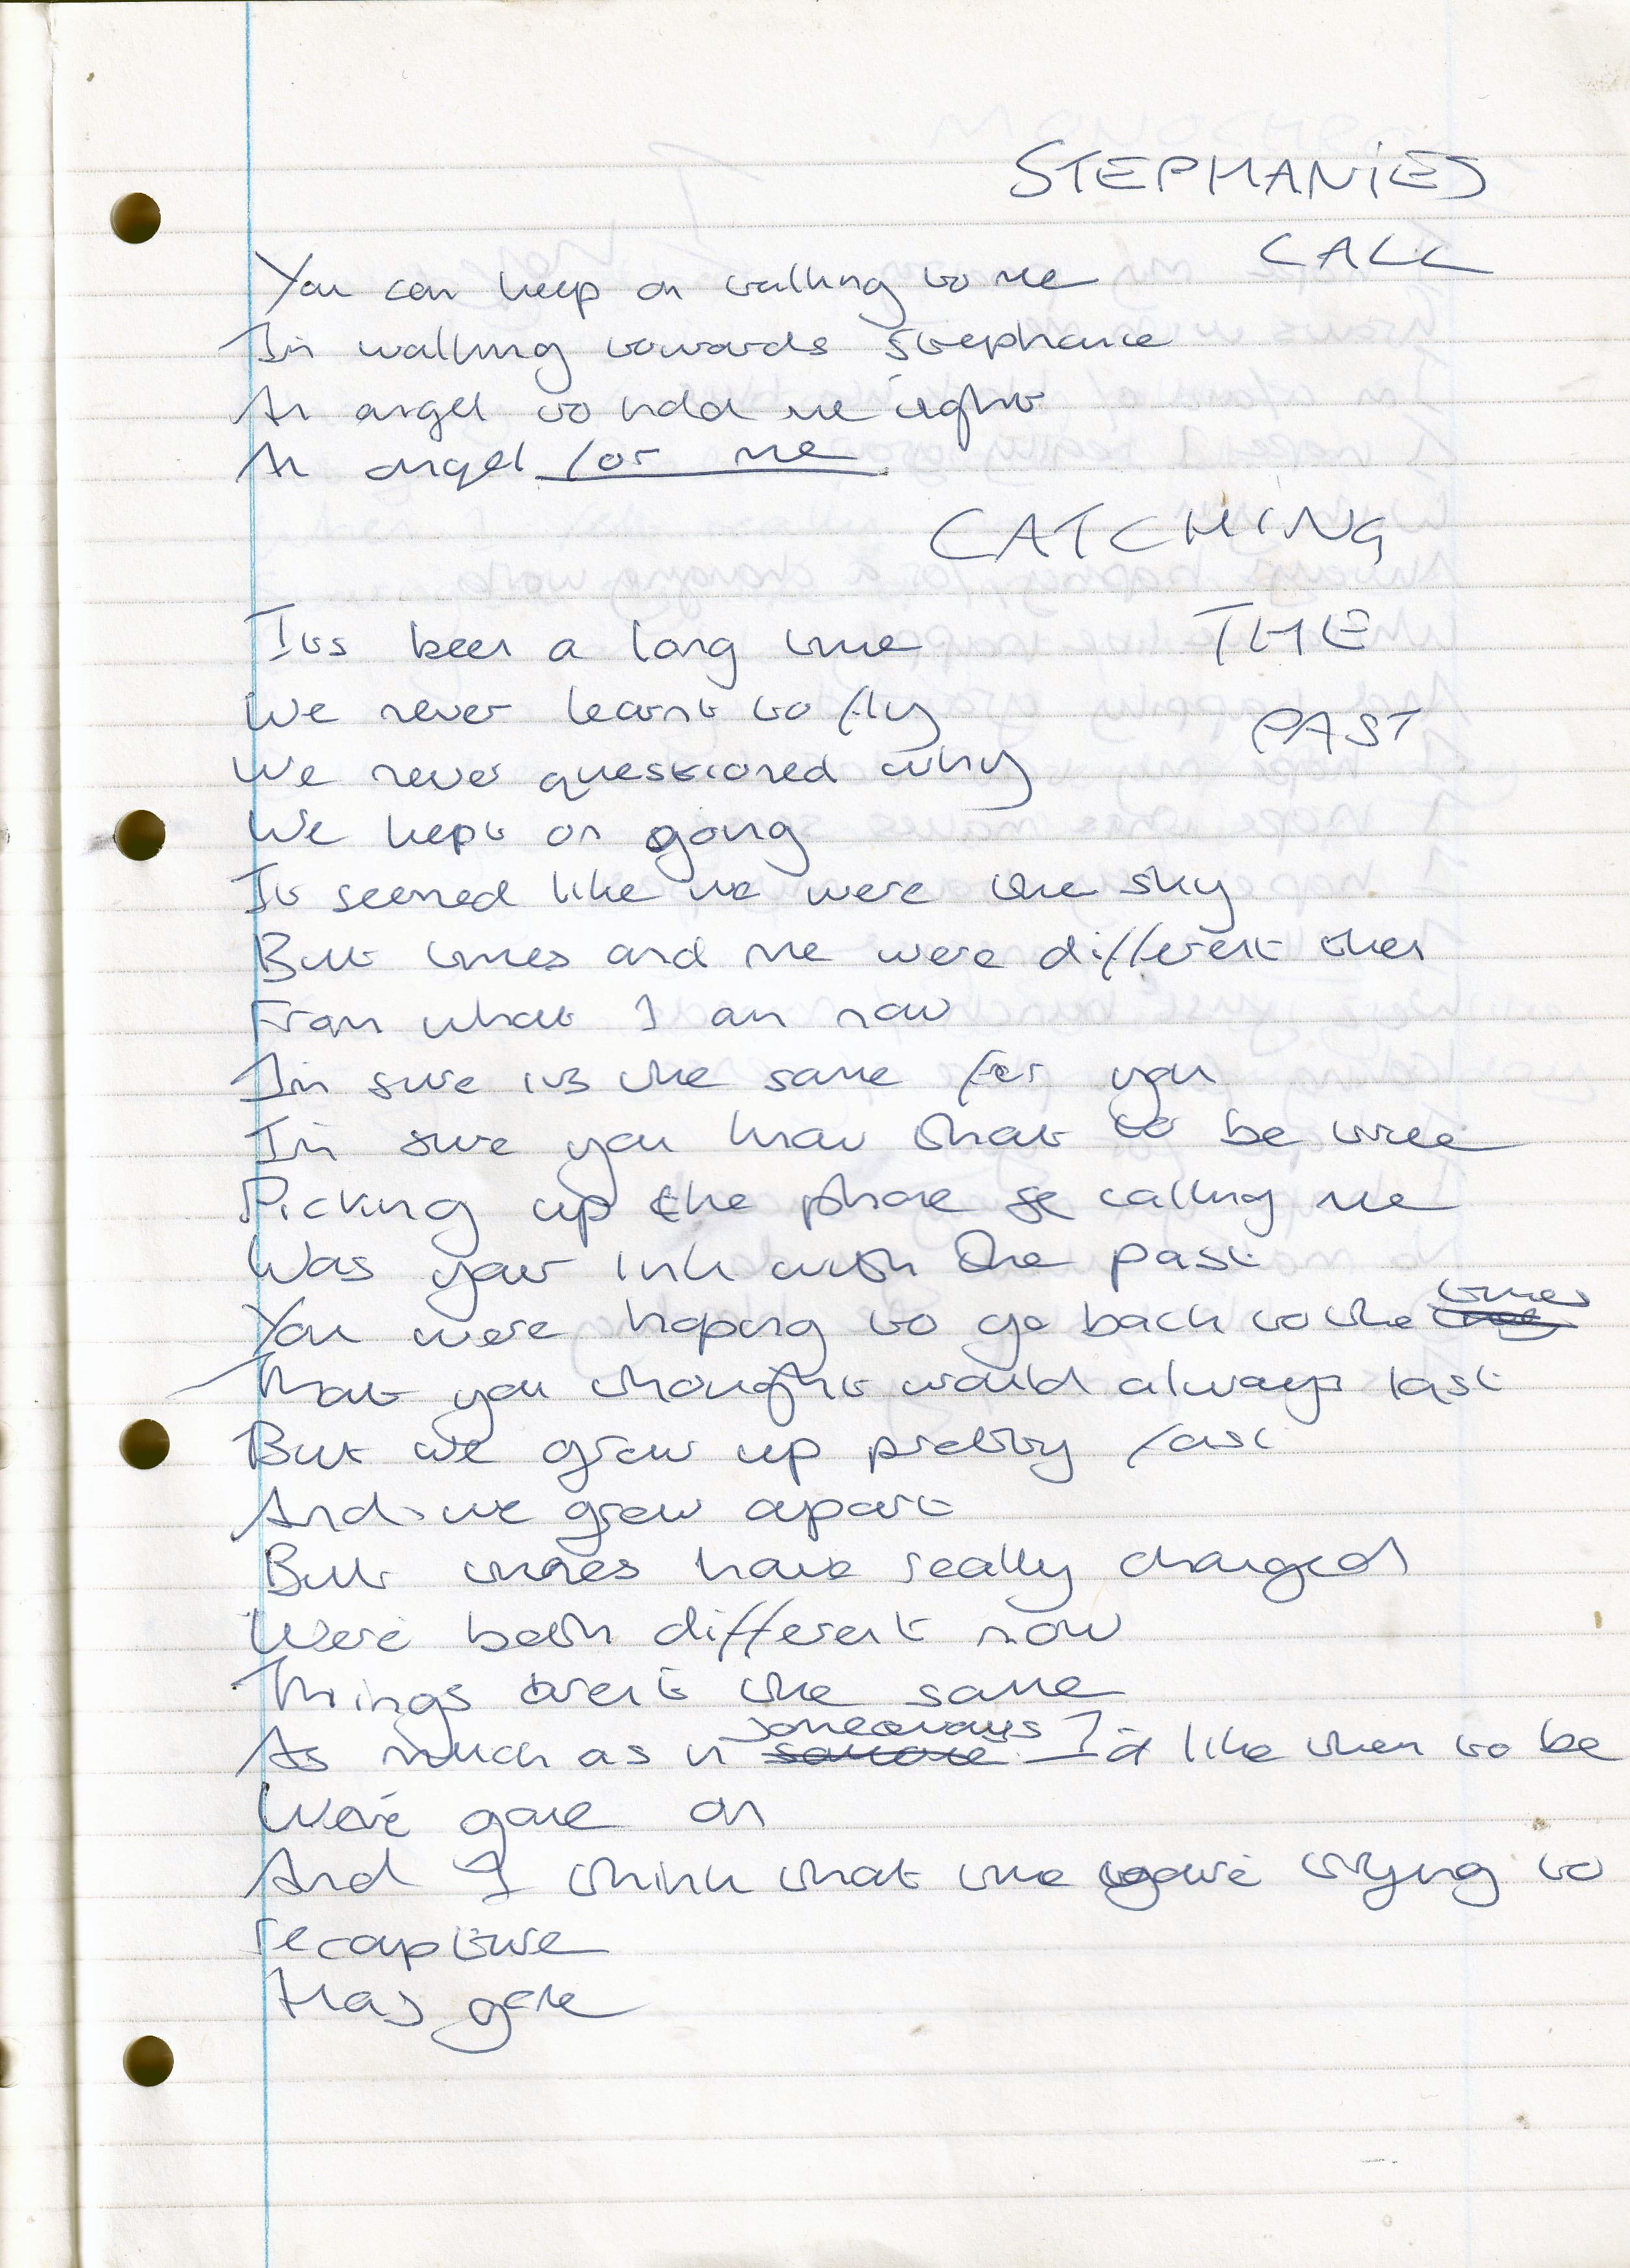 STEPHANIES
CALL
You can keep on talking to me
Im walking towards Stephanie
An angel to hold me tight
An angel for me
CATCHING
THE
PAST
Its been a long time
We never learnt to fly
We never questioned why
We kept on going
It seemed like we were the sky
But times and me were different then
From what I am now
Im sure its the same for you
Im sure you know that to be true
Picking up the phone & calling me
Was your link with the past
You were hoping to go back to the times
That you thought would always last
But we grew up pretty fast
And we grew apart
But times have really changed
We're both different now
Things aren't the same
As much as in someways I'd like them to be
We've gone on
And I think that the you're trying to
recapture
Has gone